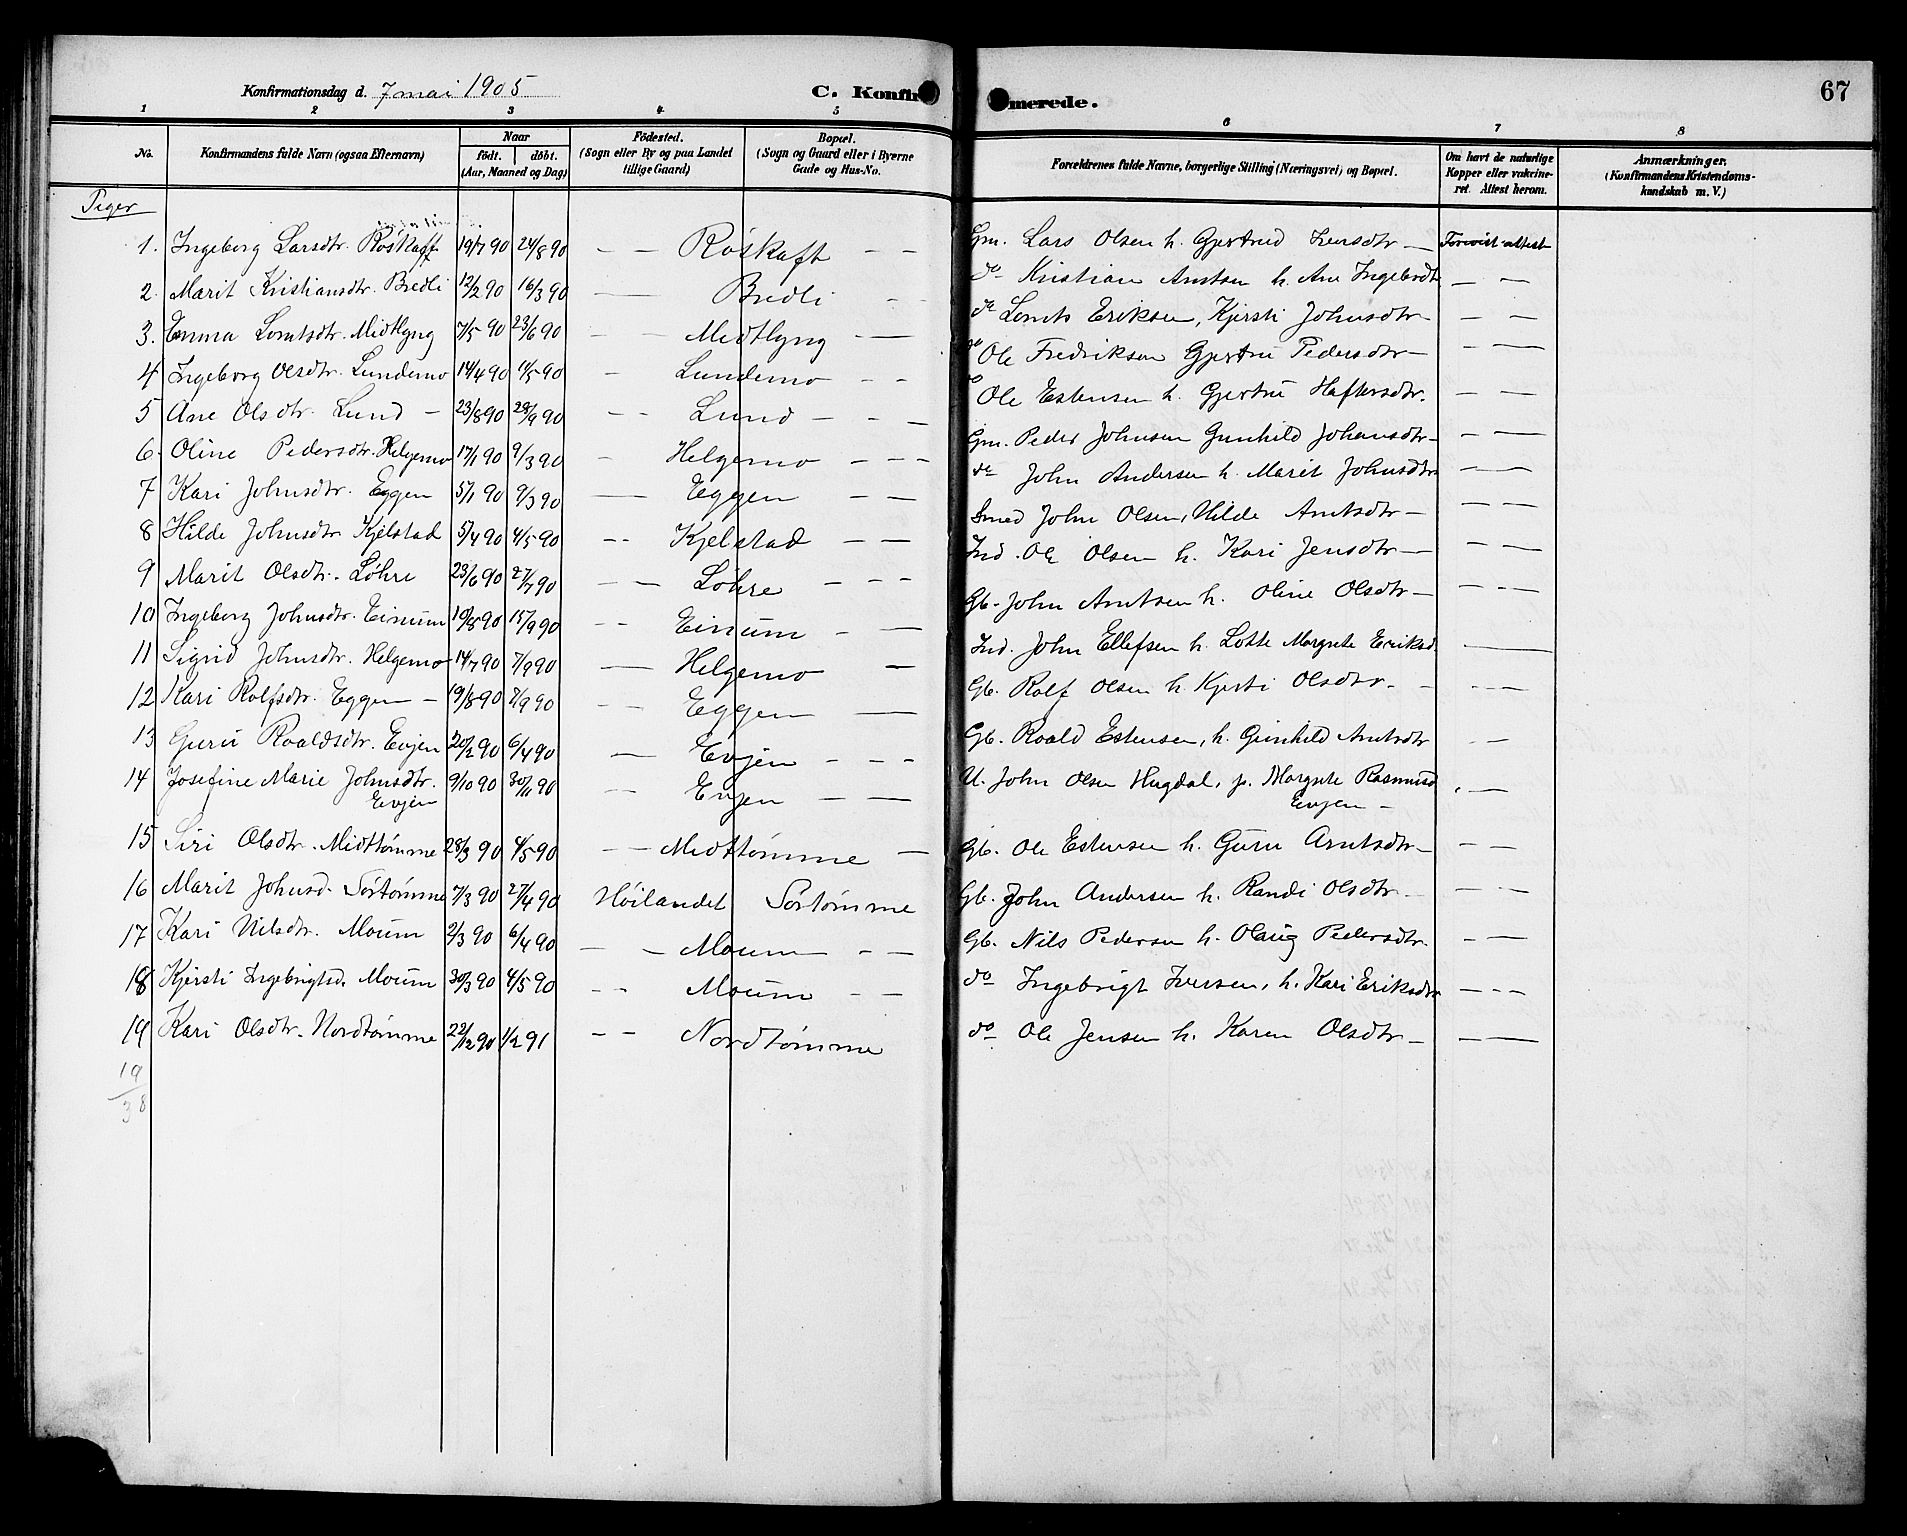 Konfirmationsdag d. 7 mai 1905 C. Konfirmerede. 67
1 2 3 4 5 6 7 8
No. Konfirmandens fulde Navn (ogsaa Efternavn) Naar født. døbt. (Aar, Maaned og Dag) Fødested. (Sogn eller By og paa Landet tillige Gaard) Bopæl. (Sogn og Gaard eller i Byerne Gade og Hus-No. Forældrenes fulde Navne, borgerlige Stilling (Næringsvei) og Bopæl. Om havt de naturlige Kopper eller vakcineret. Attest herom. Anmærkninger. (Konfirmandens Kristendomskundskab m. V.)
Piger
1. Ingeborg Larsdtr. Röskaft 19/7 90 24/8 90 — — Röskaft — — Gm. Lars Olsen h. Gjertrud Iversdtr — Forevist attest
2. Marit Kristiansdtr. Bredli 12/2 90 16/3 90 — Bredli — — do Kristian Arntsen h. Ane Ingebrdtr — —
3. Emma Lorntsdtr. Midtlyng 7/5 90 23/6 90 — Midtlyng — — do Lornts Eriksen, Kjersti Johnsdtr — — —
4 Ingeborg Olsdtr. Lundemo 14/4 90 11/5 90 — Lundemo — — do Ole Fredriksen Gjertru Pedersdtr — — —
5 Ane Olsdtr. Lund — 23/8 90 28/9 90 — — Lund — — — do Ole Estensen h. Gjertru Haftersdtr. — —
6. Oline Pedersdtr. Helgemo 17/1 90 9/3 90 — Helgemo — — — Gm. Peder Johnsen Gunhild Johansdtr — — —
7 Kari Johnsdtr. Eggen 5/1 90 9/3 90 — Eggen — — do John Andersen h. Marit Johnsdtr — —
8 Hilde Johnsdtr Kjelstad 5/4 90 4/5 90 — — Kjelstad — — Smed John Olsen, Hilde Arntsdtr — — —
9 Marit Olsdtr. Løhre 23/6 90 27/7 90 — — Løhre — — — Ind. Ole Olsen h. Kari Jensdtr — — —
10 Ingeborg Johnsdtr. Einum 10/8 90 15/9 90 — — Einum — — Gb. John Arntsen h. Oline Olsdtr — — — —
11 Sigrid Johnsdtr. Helgemo 14/7 90 7/9 90 — Helgemo — Ind. John Ellefsen h. Lotte Margrete Eriksd. —
12 Kari Rolfsdtr. Eggen — 19/8 90 7/9 90 — — Eggen — Gb. Rolf Olsen h. Kjersti Olsdtr. — — — —
13 Guru Roaldsdtr. Evjen 20/2 90 6/4 90 — Evjen — — — Gb. Roald Estensen, h. Gunhild Arntsdtr — —
14 Josefine Marie Johnsdtr. 9/10 90 30/11 90 — — Evjen — — U. John Olsen Hugdal, p. Margrete Rasmusd. —
Evjen Evjen —
15 Siri Olsdtr. Midttømme 28/3 90 4/5 90 — — Midttømme — Gb. Ole Estensen h. Guru Arntsdtr — — —
16 Marit Johnsd. Sörtømme 7/3 90 27/4 90 Høilandet Sörtømme Gb. John Andersen h. Randi Olsdtr — — — —
17 Kari Nilsdtr. Moum 2/3 90 6/4 90 — — Moum — — Gb. Nils Pedersen h. Olaug Pedersdtr. — —
18 Kjersti Ingebrigtsd. Moum 30/3 90 4/5 90 — — Moum — — do Ingebrigt Iversen, h. Kari Eriksdtr — — —
19 Kari Olsdtr. Nordtømme 22/12 90 1/2 91 — — Nordtømme do Ole Jensen h. Karen Olsdtr — — —
19
38